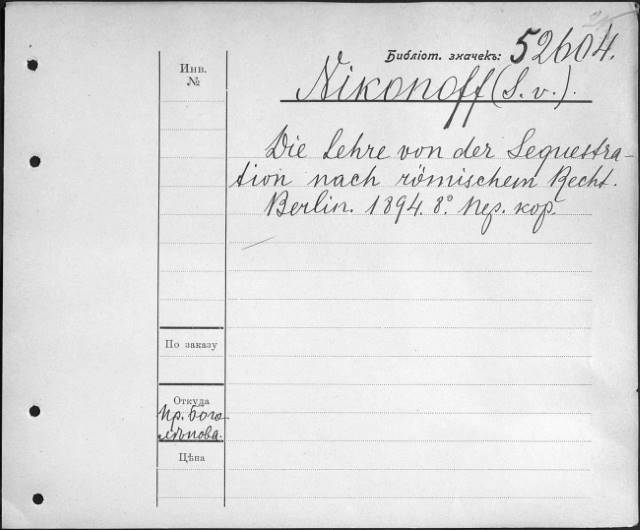 Библіот. значекъ: 52604.
Инв.
№
Nikonoff (S. v.).
Die Lehre von der Sequestra-
tion nach römischem Recht.
Berlin. 1894. 8° Пер. кор.
По заказу
Откуда
Пр. Бого-
лѣпова.
Цѣна